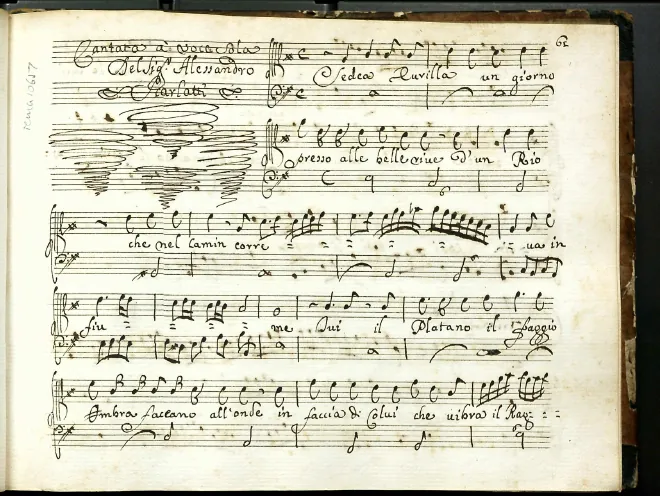 Cantata à voce sola
Del Sig.r Alessandro
Scarlatti
61
Sedea Eurilla un giorno
presso alle belle rive d'un Rio
che nel Camin corre = = = = = = = va in
fiu = = = = me Ivi il Platano il Faggio
Ombra faceano all'onde in faccia di Colui che vibra il Rag= = =